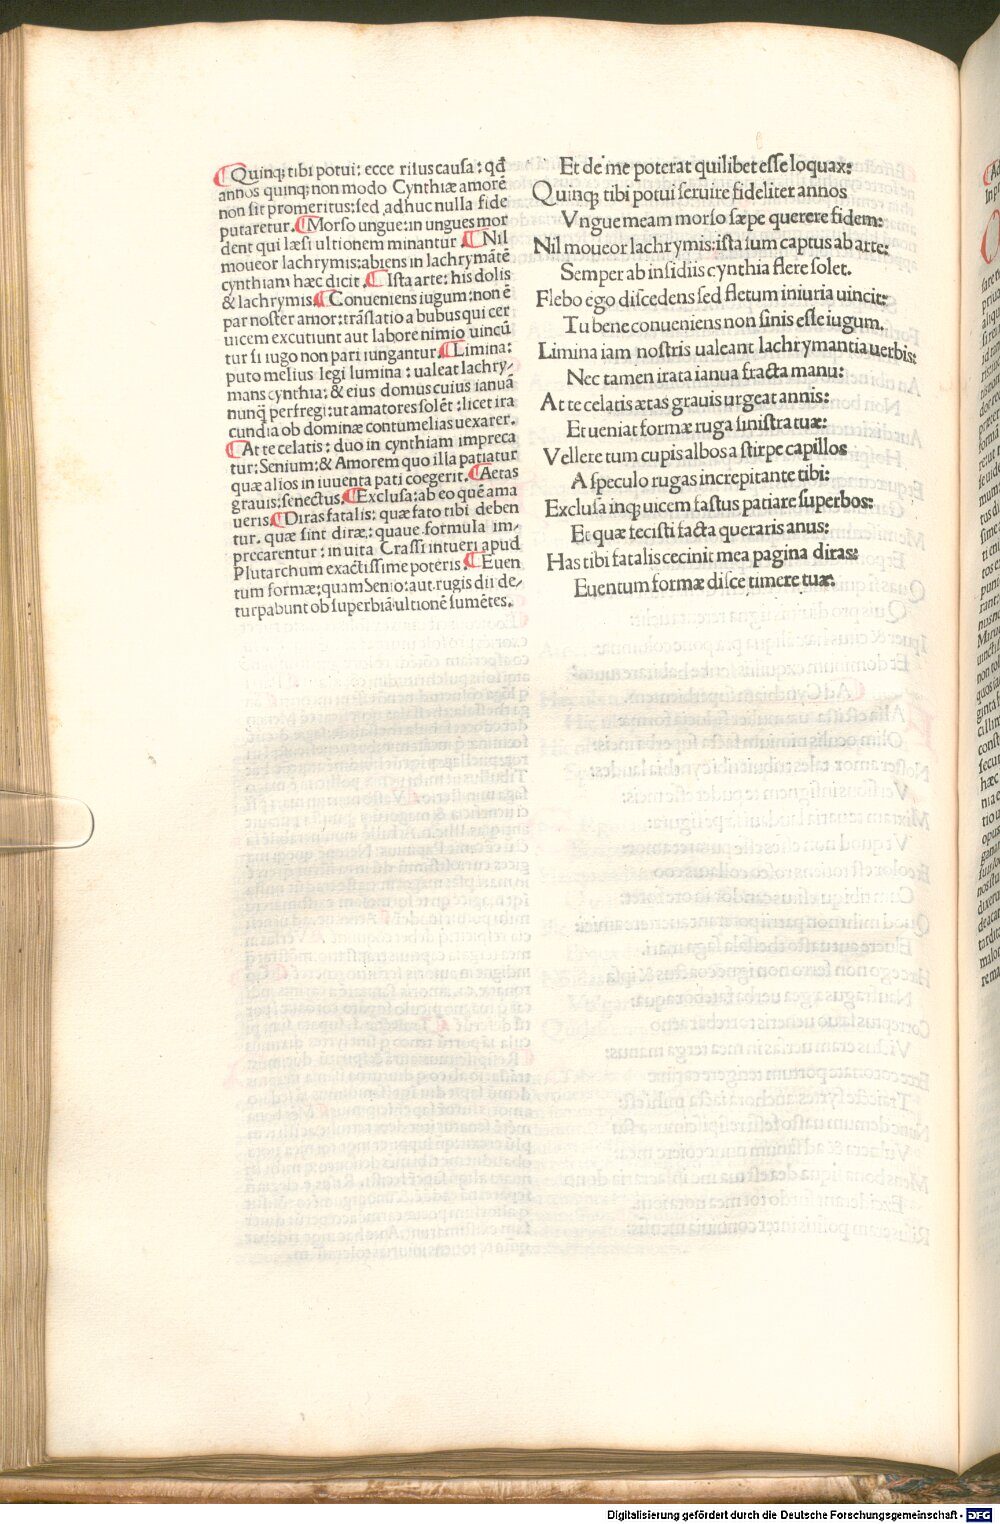 ¶Quinq; tibi potui: ecce risus causa: qđ
annos quinq; non modo Cynthiæ amorē
non sit promeritus: sed adhuc nulla fide
putaretur. ¶Morso ungue: in ungues mor
dent qui læsi ultionem minantur ¶Nil
moueor lachrymis: abiens in lachrymātē
cynthiam hæc dicit. ¶Ista arte: his dolis
& lachrymis ¶Conueniens iugum: non ē
par noster amor: trāslatio a bubus qui cer
uicem excutiunt aut labore nimio uincū
tur si iugo non pari iungantur. ¶Limina:
puto melius legi lumina: ualeat lachry-
mans cynthia: & eius domus cuius ianuā
nunq̄ perfregi: ut amatores solēt: licet ira
cundia ob dominæ contumelias uexarer.
¶At te celatis: duo in cynthiam impreca
tur: Senium: & Amorem quo illa patiatur
quæ alios in iuuenta pati coegerit. ¶Aetas
grauis: senectus. ¶Exclusa: ab eo quē ama
ueris. ¶Diras fatalis: quæ fato tibi deben
tur. quæ sint diræ: quaue formula im,
precarentur: in uita Crassi intueri apud
Plutarchum exactissime poteris. ¶Euen
tum formæ: quam Senio: aut rugis dii de-
turpabunt ob superbiā ultionē sumētes.
Et de me poterat quilibet esse loquax:
Quinq; tibi potui seruire fideliter annos
Vngue meam morso sæpe querere fidem:
Nil moueor lachrymis: ista sum captus ab arte:
Semper ab insidiis cynthia flere solet.
Flebo ego discedens sed fletum iniuria uincit:
Tu bene conueniens non sinis esse iugum.
Limina iam nostris ualeant lachrymantia uerbis:
Nec tamen irata ianua fracta manu:
At te celatis ætas grauis urgeat annis:
Et ueniat formæ ruga sinistra tuæ:
Vellere tum cupis albos a stirpe capillos
A speculo rugas increpitante tibi:
Exclusa inq; uicem fastus patiare superbos:
Et quæ fecisti facta queraris anus:
Has tibi fatalis cecinit mea pagina diras:
Euentum formæ disce timere tuæ.
Digitalisierung gefördert durch die Deutsche Forschungsgemeinschaft - DFG